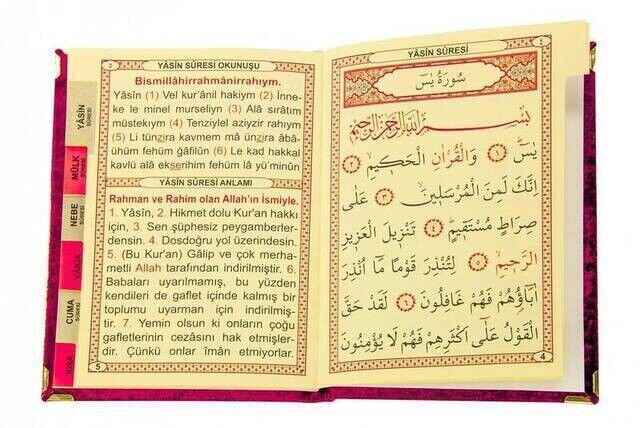 YÂSİN
SÛRESİ
MÜLK
SÛRESİ
NEBE
SÛRESİ
VÂKIA
CUMA
SÛRESİ
KISA
YÂSİN SÛRESİ OKUNUŞU
Bismillâhirrahmânirrahıym.
Yâsîn (1) Vel kur'ânil hakiym (2) İnne-
ke le minel murseliyn (3) Alâ sırâtım
müstekıym (4) Tenziylel aziyzir rahıym
(5) Li tünzira kavmem mâ ünzira âbâ-
ühüm fehüm ğâfilûn (6) Le kad hakkal
kavlü alâ ekserihim fehüm lâ yü'minûn
YÂSİN SÛRESİ ANLAMI
Rahman ve Rahim olan Allah'ın İsmiyle.
1. Yâsîn, 2. Hikmet dolu Kur'an hakkı
için, 3. Sen şüphesiz peygamberler-
densin. 4. Dosdoğru yol üzerindesin.
5. (Bu Kur'an) Gâlip ve çok merha-
metli Allah tarafından indirilmiştir. 6.
Babaları uyarılmamış, bu yüzden
kendileri de gaflet içinde kalmış bir
toplumu uyarman için indirilmiş-
tir. 7. Yemin olsun ki onların çoğu
gafletlerinin cezasını hak etmişler-
dir. Çünkü onlar îmân etmiyorlar.
5
٤
YÂSİN SÛRESİ
سُورَةُ يٰسٓ
بِسْمِ اللهِ الرَّحْمٰنِ الرَّحِيمِ
يٰسٓ ﴿١﴾ وَالْقُرْاٰنِ الْحَكِيمِ ﴿٢﴾
اِنَّكَ لَمِنَ الْمُرْسَلِينَ ﴿٣﴾ عَلٰى
صِرَاطٍ مُسْتَقِيمٍ ﴿٤﴾ تَنْزِيلَ الْعَزِيزِ
الرَّحِيمِ ﴿٥﴾ لِتُنْذِرَ قَوْمًا مَٓا اُنْذِرَ
اٰبَٓاؤُهُمْ فَهُمْ غَافِلُونَ ﴿٦﴾ لَقَدْ حَقَّ
الْقَوْلُ عَلٰٓى اَكْثَرِهِمْ فَهُمْ لَا يُؤْمِنُونَ
4